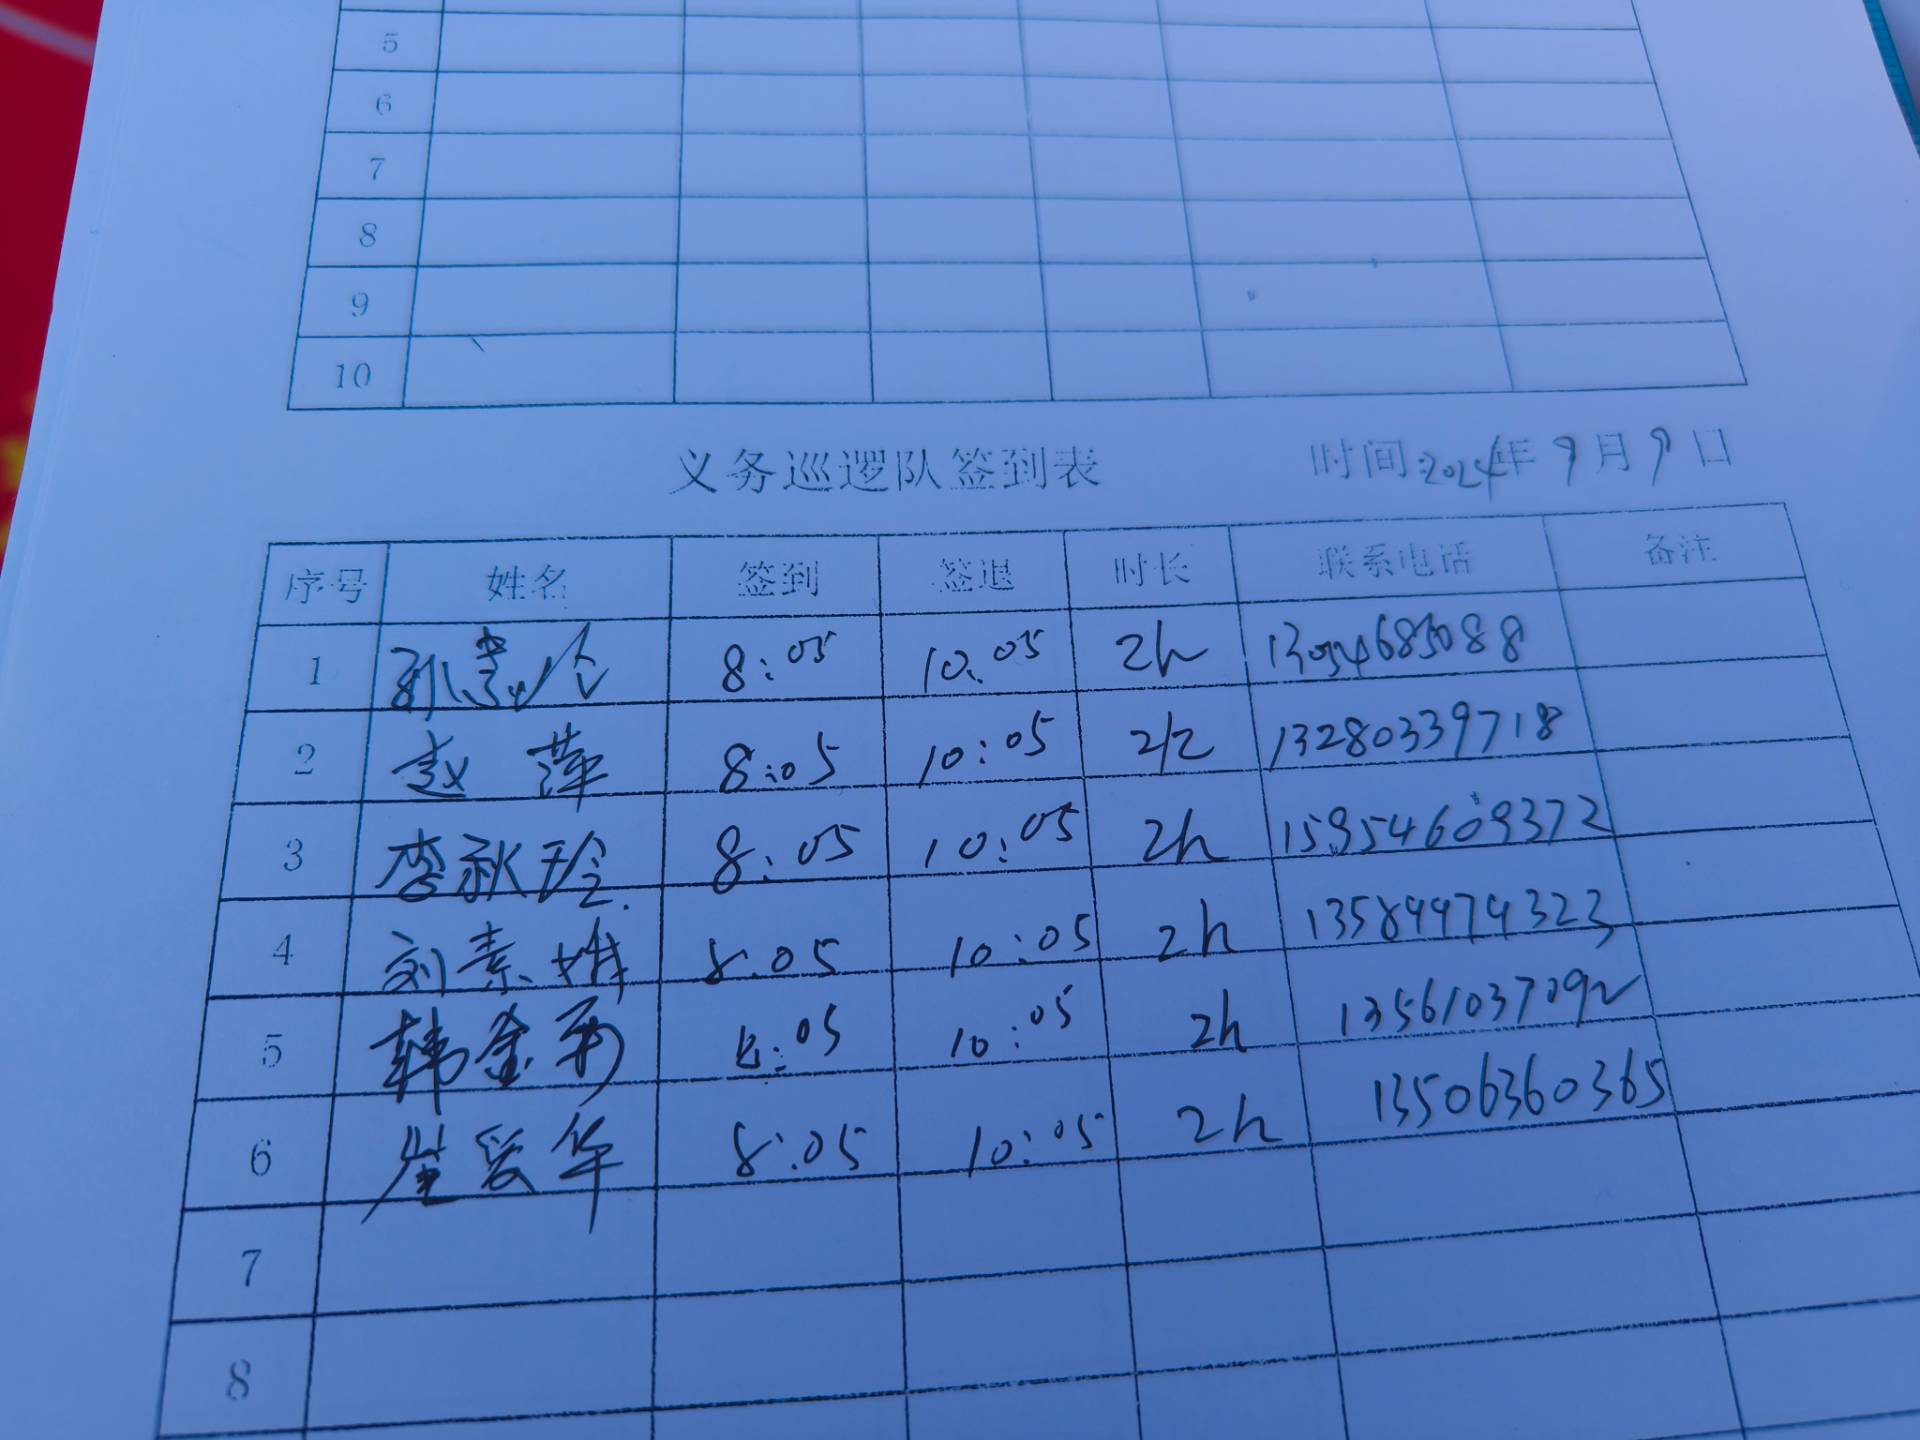 5
6
7
8
9
10
义务巡逻队签到表 时间:2024年9月9日
序号 姓名 签到 签退 时长 联系电话 备注
1 8:05 10:05 2h
2 赵萍 8:05 10:05 2h 13280339718
3 李秋玲 8:05 10:05 2h 15954609372
4 刘素娥 8:05 10:05 2h
5 韩金 8:05 10:05 2h 13561037092
6 崔爱华 8:05 10:05 2h 13506360365
7
8